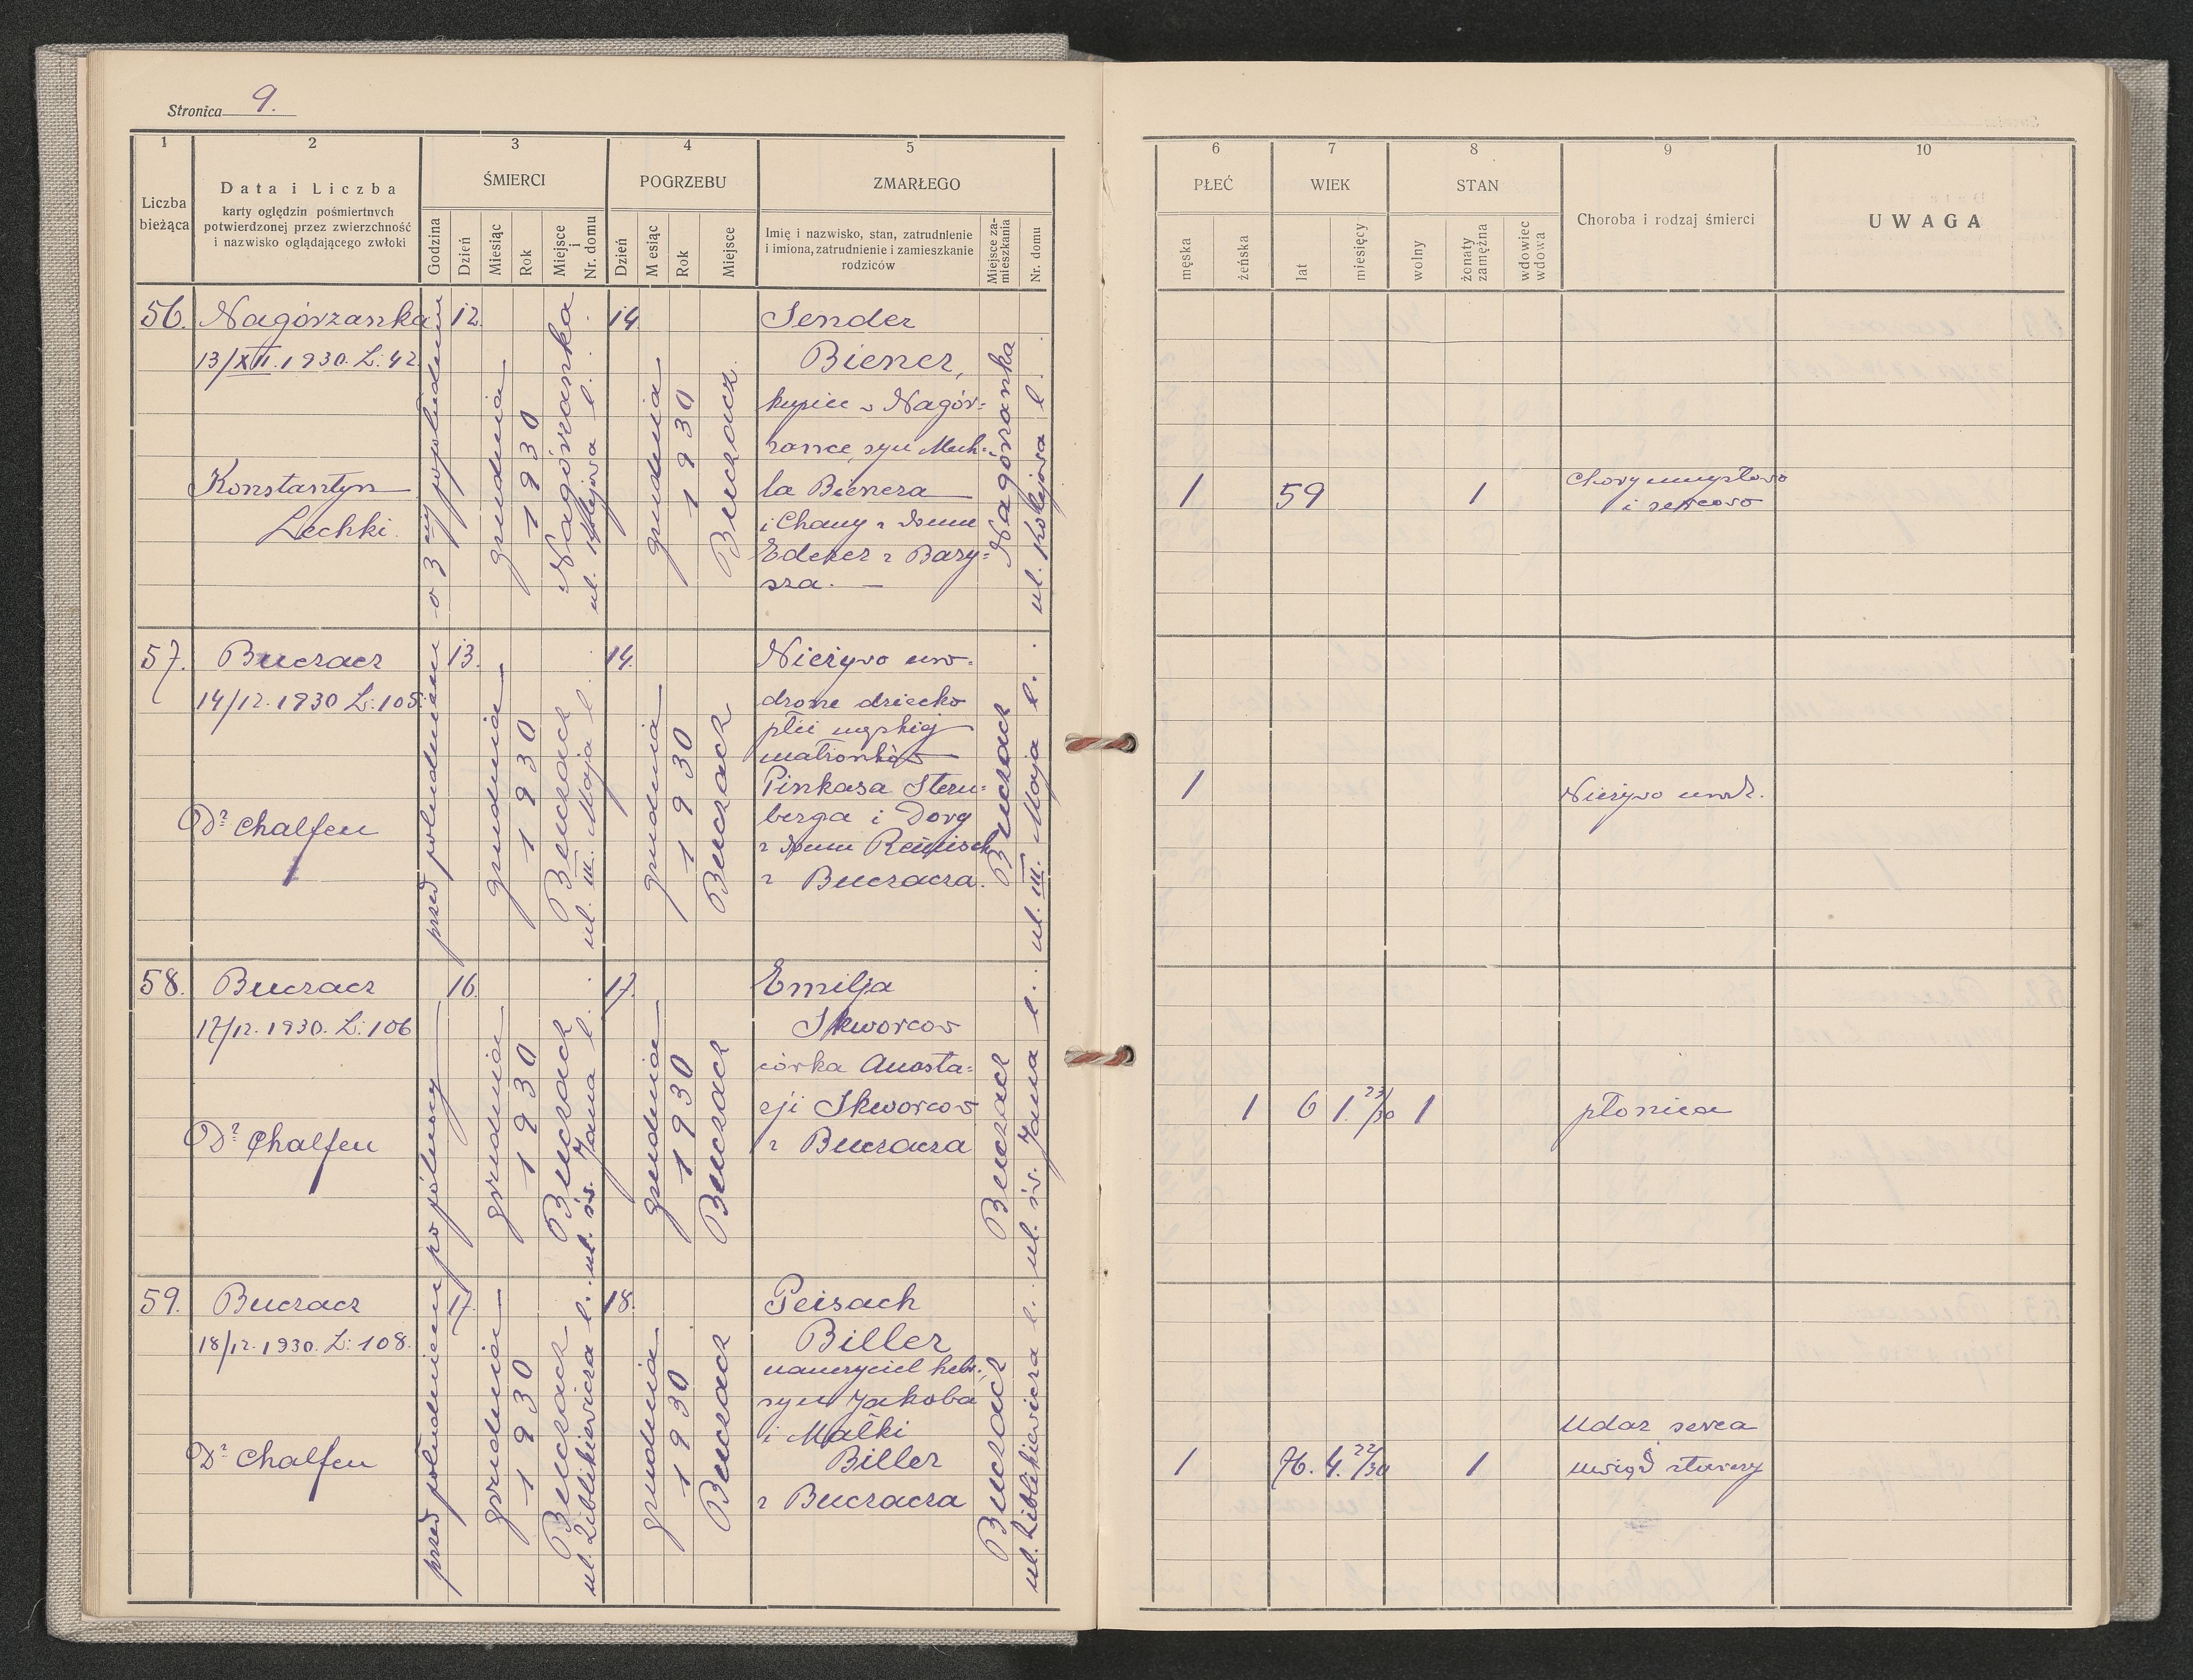 Stronica 9.
1
2
3
4
5
Liczba bieżąca
Data i Liczba
karty oględzin pośmiertnych
potwierdzonej przez zwierzchność
i nazwisko oglądającego zwłoki
ŚMIERCI
POGRZEBU
ZMARŁEGO
Godzina
Dzień
Miesiąc
Rok
Miejsce i Nr. domu
Dzień
Miesiąc
Rok
Miejsce
Imię i nazwisko, stan, zatrudnienie
i imiona, zatrudnienie i zamieszkanie
rodziców
Miejsce zamieszkania
Nr. domu
6
7
8
9
10
PŁEĆ
WIEK
STAN
Choroba i rodzaj śmierci
UWAGA
męska
żeńska
lat
miesięcy
wolny
żonaty zamężna
wdowiec wdowa
56.
Nagórzanka
13/XII. 1930. L: 42.
Konstantyn
Lechki.
o 3 ej popołudniu
12.
grudnia
1930
Nagórzanka
ul. Kolejowa l.
14
grudnia
1930
Buczacz
Sender
Biener,
kupiec w Nagór=
zance, syn Mech=
la Bienera
i Chany z domu
Ederer z Bary=
sza.
Nagórzanka
ul. Kolejowa l.
1
59
1
Chory umysłowo
i sercowo
57.
Buczacz
14/12. 1930 L: 105.
Dr Chalfen
przed południem
13.
grudnia
1930
Buczacz
ul. III. Maja l.
14.
grudnia
1930
Buczacz
Nieżywo uro=
dzone dziecko
płci męskiej
małżonków
Pinkasa Stern=
berga i Dory
z domu
z Buczacza.
Buczacz
ul. III. Maja l.
1
Nieżywo urodz.
58.
Buczacz
17/12. 1930. L: 106
Dr Chalfen
po północy
16.
grudnia
1930
Buczacz
ul. św. Jana l.
17.
grudnia
1930
Buczacz
Emilja
Skworcow
córka Anasta=
zji Skworcow
z Buczacza
Buczacz
ul. św. Jana l.
1
6
1. 23/30
1
płonica
59.
Buczacz
18/12. 1930. L: 108.
Dr Chalfen
przed południem
17.
grudnia
1930
Buczacz
ul. Zeblikiewicza l.
18.
grudnia
1930
Buczacz
Peisach
Biller
nauczyciel hebr.,
syn Jakoba
i Małki
Biller
z Buczacza
Buczacz
ul. Zeblikiewicza l.
1
76.
4. 22/30
1
Udar serca
uwiąd starczy